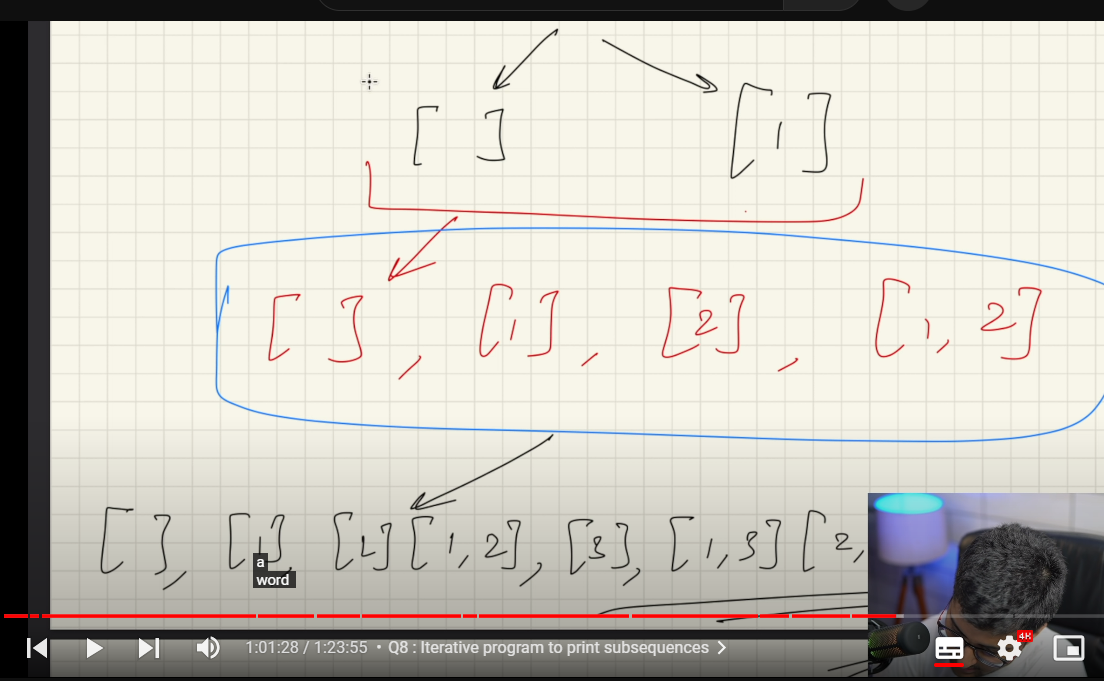 [ ] [1]
[ ] , [1] , [2] , [1, 2]
[ ] , [1], [2] [1, 2] , [3] , [1, 3] [2,
a
word
1:01:28 / 1:23:55 • Q8 : Iterative program to print subsequences
4K